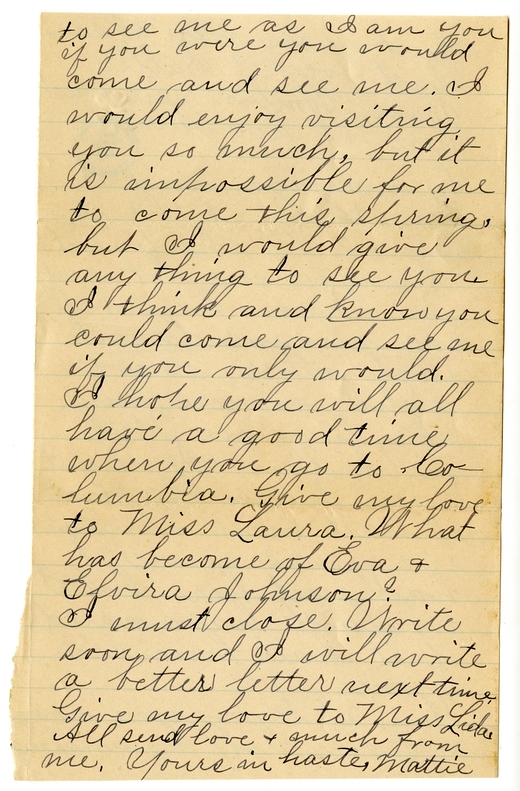 to see me as I am you
if you were you would
come and see me. I
would enjoy visiting
you so much, but it
is impossible for me
to come this spring,
but I would give
any thing to see you.
I think and know you
could come and see me
if you only would.
I hope you will all
have a good time
when you go to Co-
lumbia. Give my love
to Miss Laura. What
has become of Eva &
Elvira Johnson?
I must close. Write
soon and I will write
a better letter next time.
Give my love to Miss Lida.
All send love & much from
me. Yours in haste, Mattie